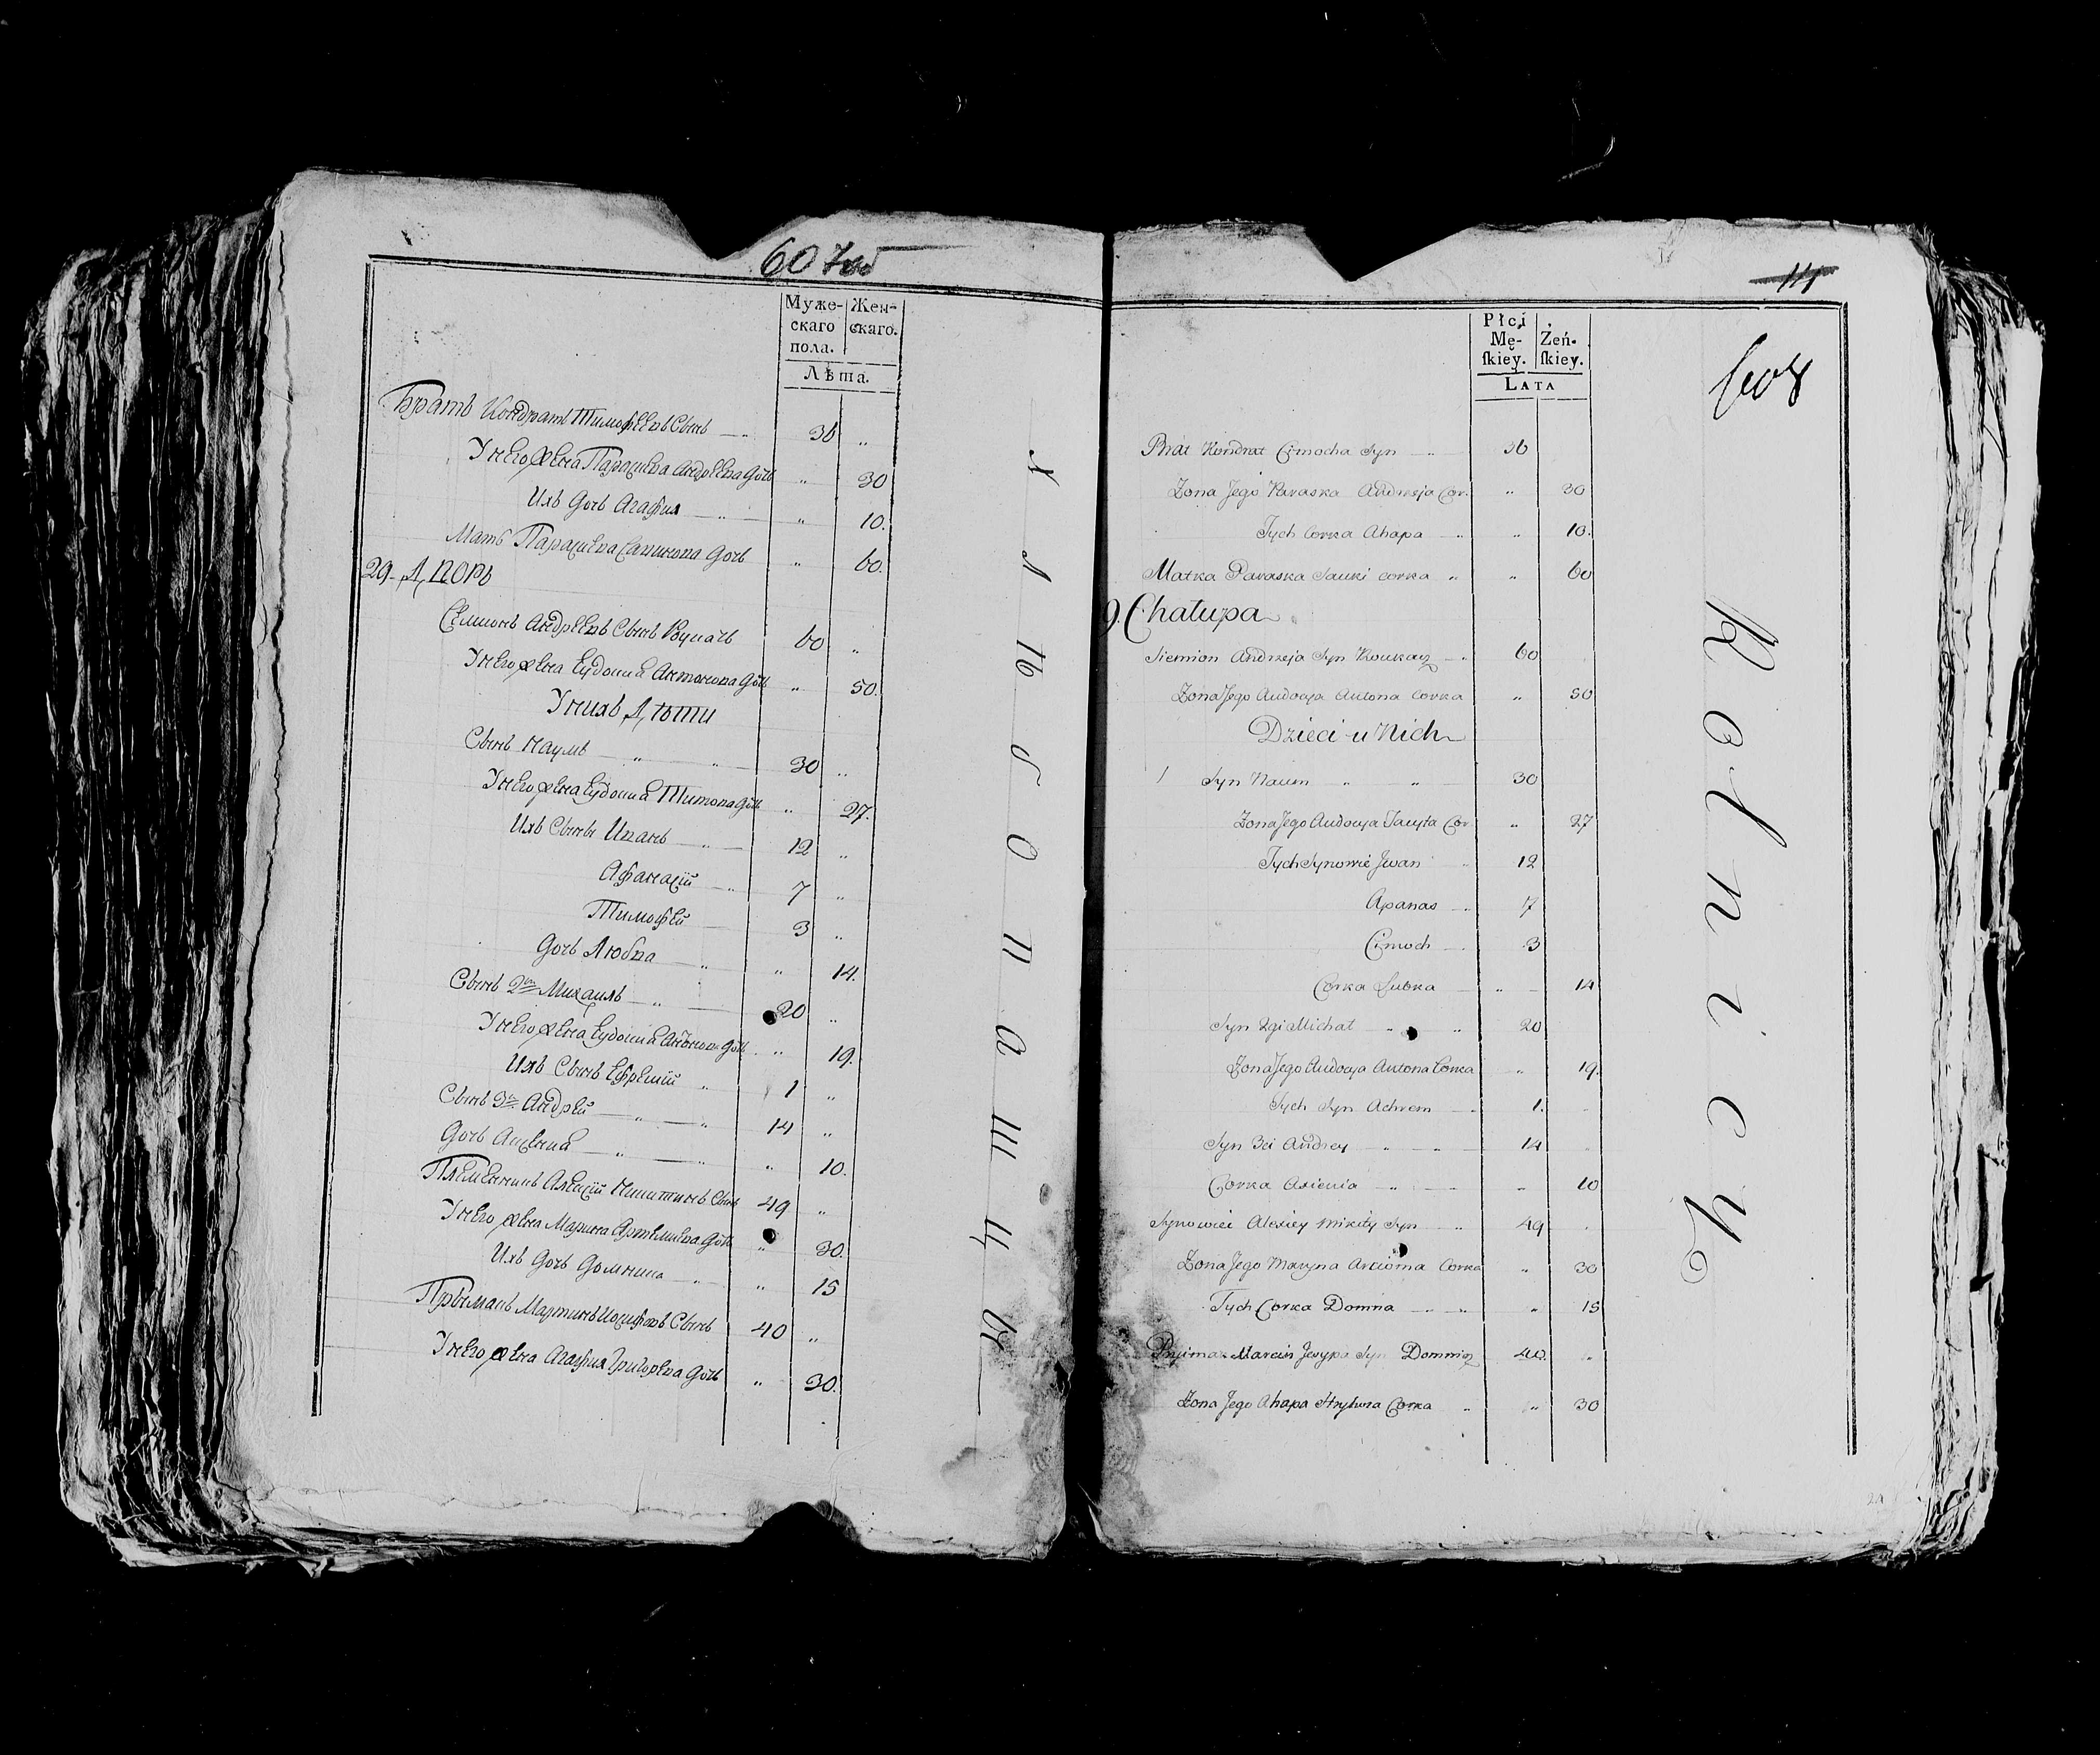 607об
Муже-
скаго
пола.
Жен-
скаго.
Лѣта.
Братъ Кондратъ Тимофеевъ Сынъ — „ 36 „
У него жена Параскева Андреева дочь „ 30
Ихъ дочь Агафия — „ — „ 10.
Мать Параскева Савикова дочь „ 60.
29. Дворъ
Семионъ Андреевъ Сынъ 60 „
У него жена Еудокиа Антонова дочь „ 50.
У нихъ Дѣти
Сынъ Наумъ „ „ 30 „
У него жена Еудокиа Титова дочь „ 27.
Ихъ Сыны Иванъ — „ — 12 „
Афанасій — „ 7 „
Тимофей — 3 „
дочь Любва — „ „ 14.
Сынъ 2й Михаилъ — „ — 20 „
У него жена Еудокиа Антонова дочь „ 19.
Ихъ Сынъ Ефремій „ 1 „
Сынъ 3й Андрей — „ — „ 14 „
дочь Аксениа — „ — „ „ 10.
Племенникъ Алексій Никитинъ Сынъ 49 „
У него жена Марина Артемиева дочь „ 30.
Ихъ дочь Домникa — „ — „ 15
Прыймакъ Мартинъ Иосифовъ Сынъ 40 „
У него жена Агафия Григорева дочь „ 30.
Хлѣбопашцы
111
608
Płci
Mę-
ſkiey.
Żeń-
ſkiey.
LATA
Brat Kondrat Cimocha Syn — „ — 36
Żona Jego Paraska Andrzeja Cor. „ 30
Tych Corka Ahapa — „ „ 10.
Matka Paraska Sauki corka „ „ 60
9. Chałupa
Siemion Andrzeja Syn — „ 60
Żona Jego Audocya Antona Corka „ 50
Dzieci u Nich
1 Syn Naum „ „ — 30
Żona Jego Audocya Cor „ 27
Tych Synowie Jwan „ 12
Apanas — „ 7
Cimoch — 3
Corka Lubka — „ — 14
Syn 2gi Michał „ „ 20
Żona Jego Audocya Antona Corka „ 19.
Tych Syn Achrem — 1.
Syn 3ci Andrey — „ — „ 14
Corka Axienia — „ — „ 10
Synowiec Alexiey Mikity Syn — „ 49
Żona Jego Maryna Arcioma Corka „ 30
Tych Corka Domna — „ — „ „ 15
Pryimak Marcin Jesypa Syn 40 „
Żona Jego Ahapa Hryhora Corka „ „ 30
Rolnicy